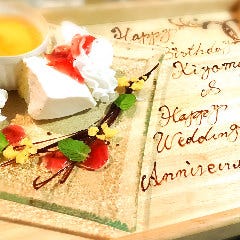 Happy
Birthday
Kiyoma
&
Happy
Wedding
Anniversa